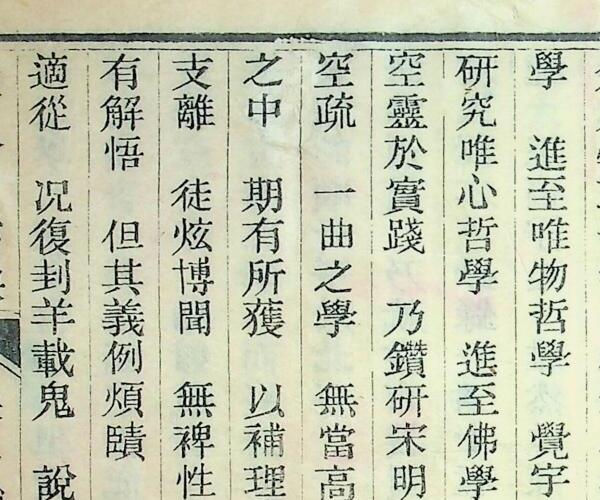 學 進至唯物哲學 覺宇
研究唯心哲學 進至佛學
空靈於實踐 乃鑽研宋明
空疏 一曲之學 無當高
之中 期有所獲 以補理
支離 徒炫博聞 無裨性
有解悟 但其義例煩賾
適從 況復封羊載鬼 說